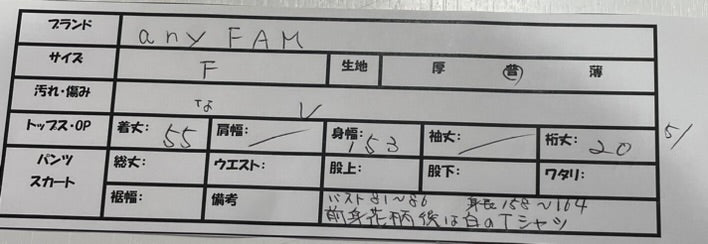 ブランド any FAM
サイズ F 生地 厚 普 薄
汚れ・傷み なし
トップス・OP 着丈: 55 肩幅: 身幅: 53 袖丈: 裄丈: 20 5/
パンツ スカート 総丈: ウエスト: 股上: 股下: ワタリ:
裾幅: 備考 バスト81～86 身長158～164
前身花柄後は白のTシャツ